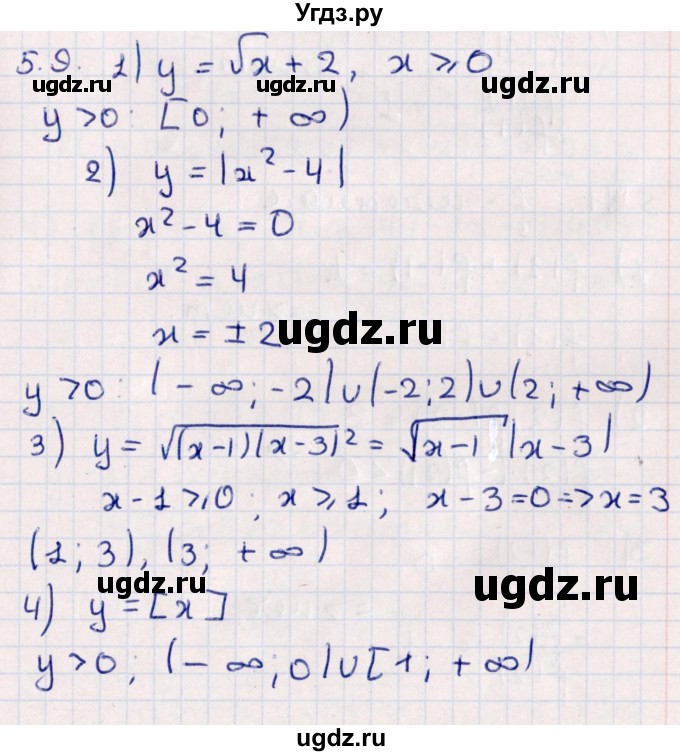 Угдз.ру
5.9. 1) y = √x + 2, x ⩾ 0
ugdz.ru ugdz.ru
y > 0: [0; + ∞)
2) y = |x² - 4|
x² - 4 = 0
x² = 4
x = ± 2
ugdz.ru
y > 0: (- ∞; -2) ∪ (-2; 2) ∪ (2; +∞)
3) y = √(x-1)(x-3)² = √x-1 |x-3|
x - 1 ⩾ 0; x ⩾ 1; x - 3 = 0 => x = 3
(1; 3), (3; + ∞)
ugdz.ru ugdz.ru
4) y = [x]
y > 0; (- ∞; 0) ∪ [1; + ∞)
ugdz.ru ugdz.ru